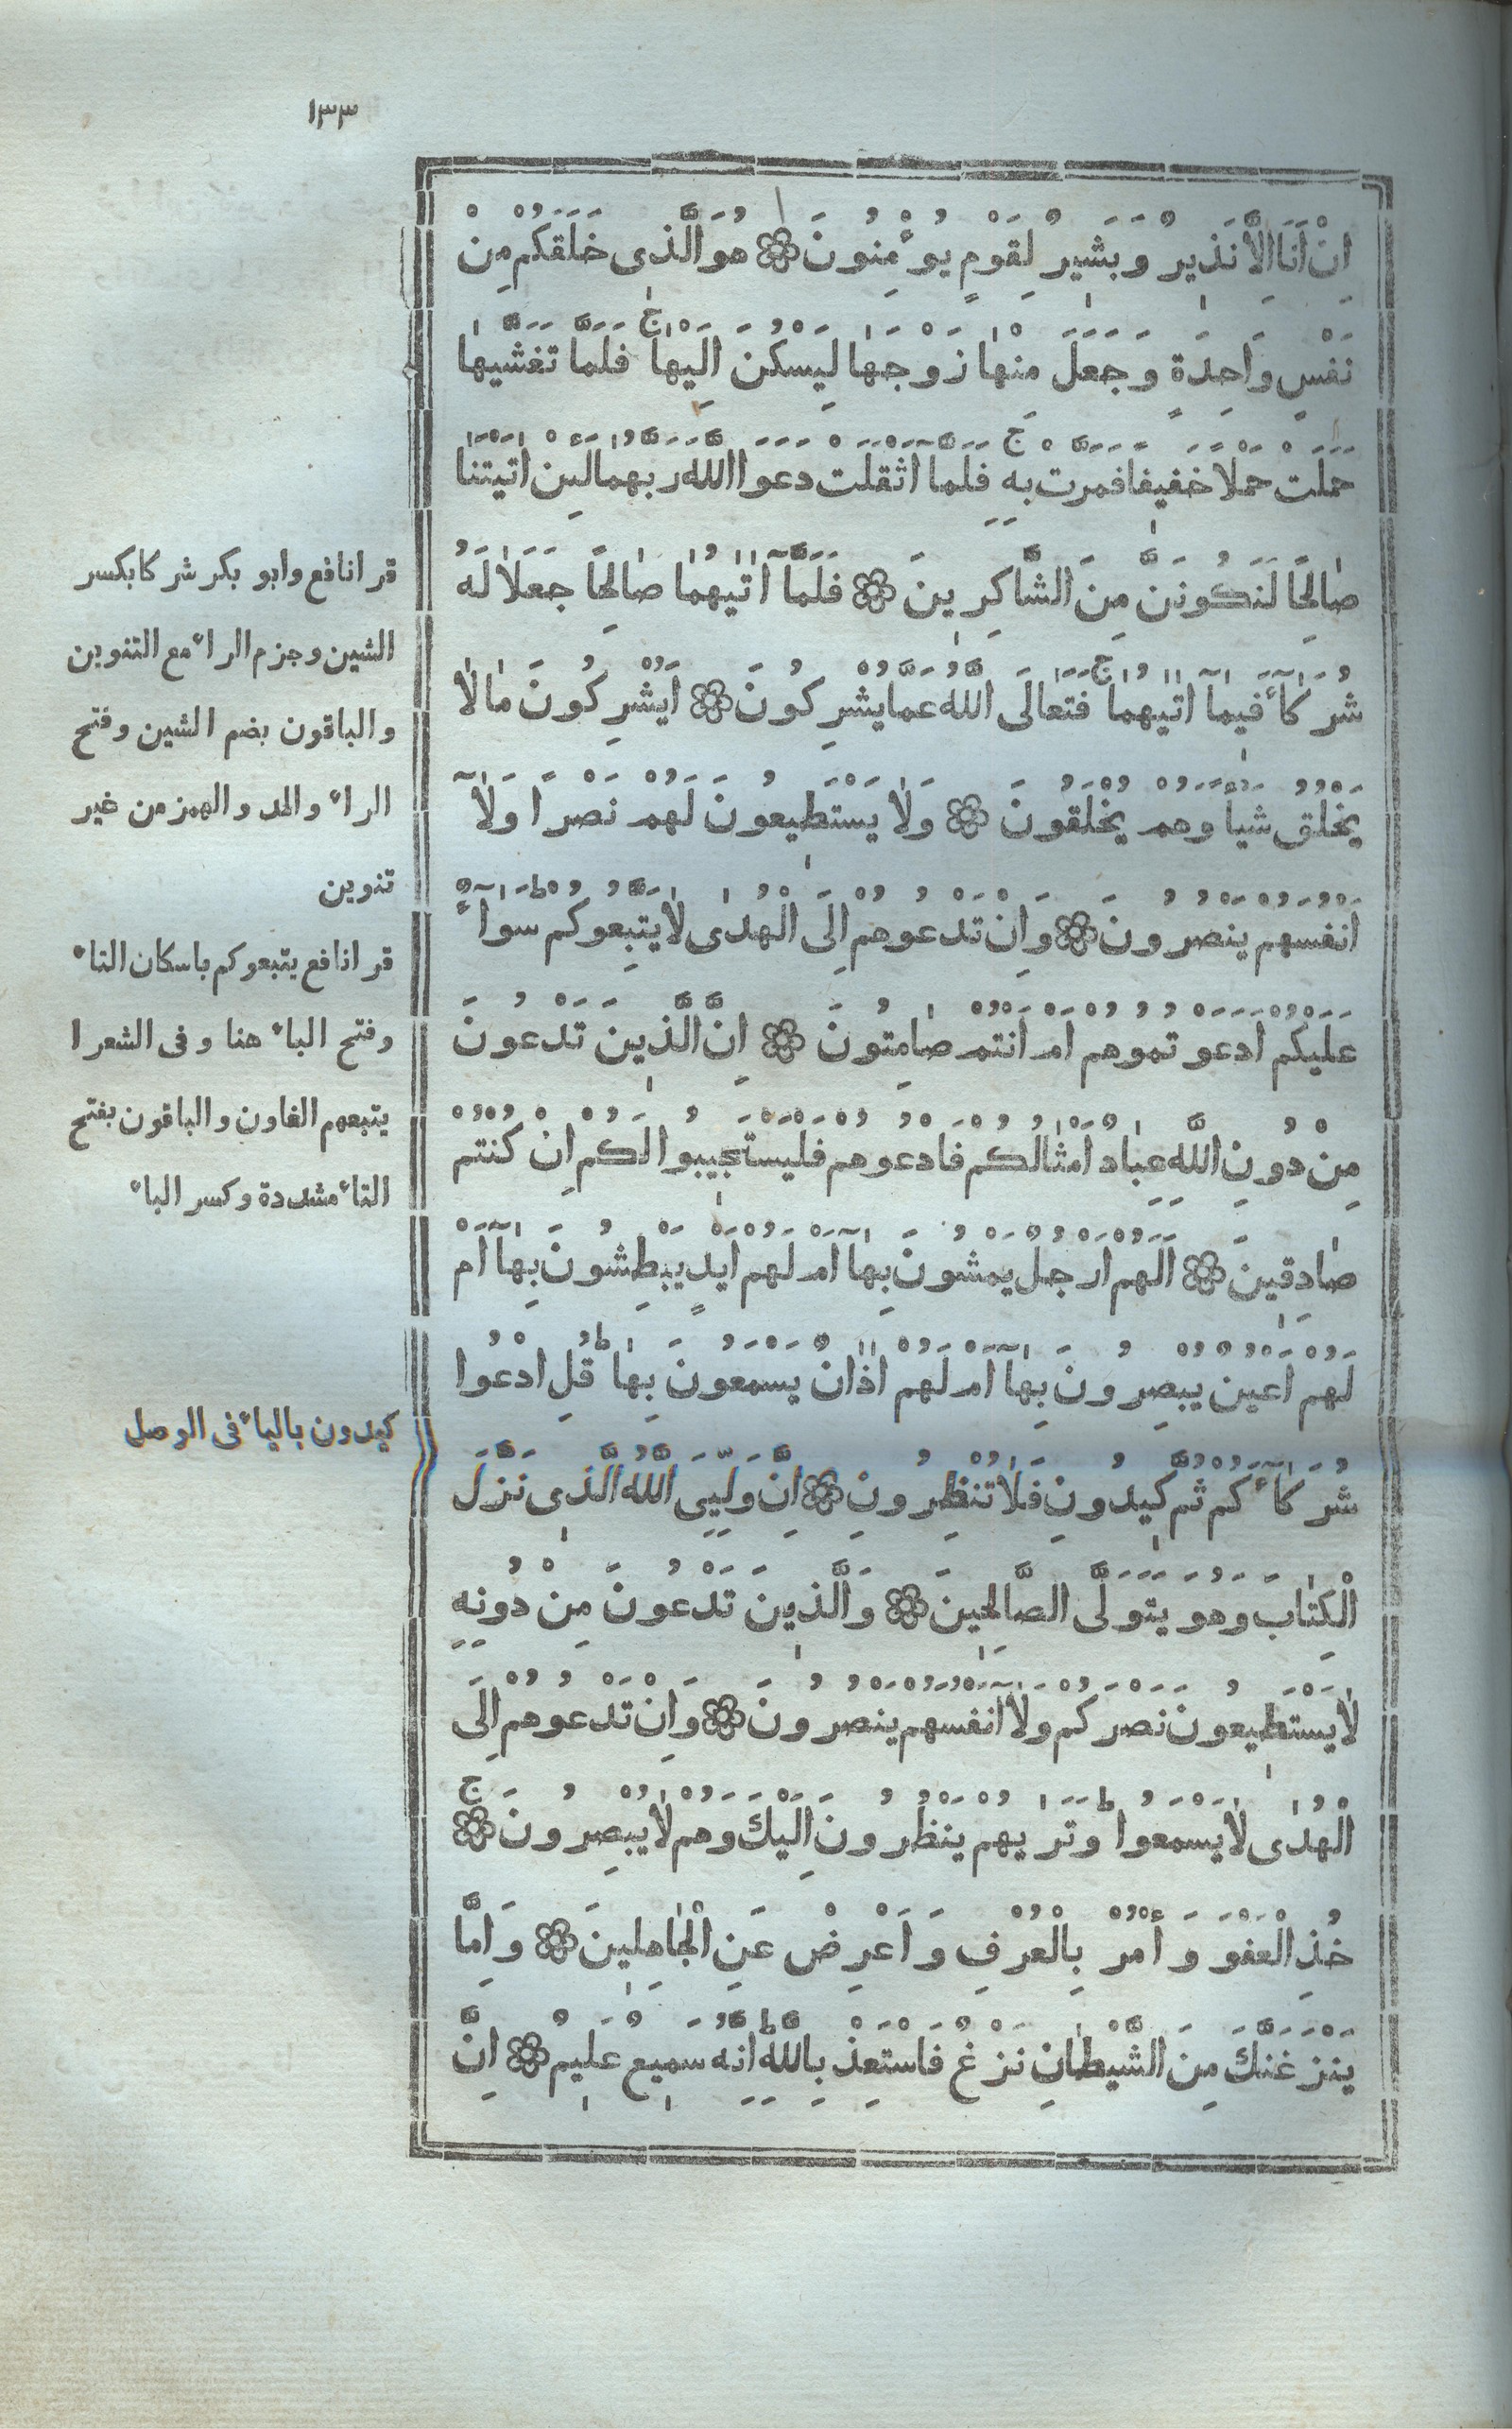 ١٣٣
اِنْ اَنَا اِلَّا نَذٖيرٌ وَبَشٖيرٌ لِقَوْمٍ يُؤْمِنُونَ ۞ هُوَ الَّذٖى خَلَقَكُمْ مِنْ
نَفْسٍ وَاحِدَةٍ وَجَعَلَ مِنْهٰا زَوْجَهٰا لِيَسْكُنَ اِلَيْهٰا ج فَلَمَّا تَغَشّٰيهٰا
حَمَلَتْ حَمْلًا خَفٖيفًا فَمَرَّتْ بِهِ ج فَلَمَّآ اَثْقَلَتْ دَعَوَا اللَّهَ رَبَّهُمٰا لَئِنْ اٰتَيْتَنٰا
صٰالِحًا لَنَكُونَنَّ مِنَ الشَّاكِرٖينَ ۞ فَلَمَّآ اٰتٰيهُمٰا صٰالِحًا جَعَلٰا لَهُ
شُرَكٰآءَ فٖيمٰآ اٰتٰيهُمٰا ج فَتَعٰالَى اللَّهُ عَمَّا يُشْرِكُونَ ۞ اَيُشْرِكُونَ مٰا لٰا
يَخْلُقُ شَيْاً وَهُمْ يُخْلَقُونَ ۞ وَلٰا يَسْتَطٖيعُونَ لَهُمْ نَصْرًا وَلٰآ
اَنْفُسَهُمْ يَنْصُرُونَ ۞ وَاِنْ تَدْعُوهُمْ اِلَى الْهُدٰى لٰا يَتَّبِعُوكُمْ ط سَوٰآءٌ
عَلَيْكُمْ اَدَعَوْتُمُوهُمْ اَمْ اَنْتُمْ صٰامِتُونَ ۞ اِنَّ الَّذٖينَ تَدْعُونَ
مِنْ دُونِ اللَّهِ عِبٰادٌ اَمْثٰالُكُمْ فَادْعُوهُمْ فَلْيَسْتَجٖيبُوا لَكُمْ اِنْ كُنْتُمْ
صٰادِقٖينَ ۞ اَلَهُمْ اَرْجُلٌ يَمْشُونَ بِهٰآ اَمْ لَهُمْ اَيْدٍ يَبْطِشُونَ بِهٰآ اَمْ
لَهُمْ اَعْيُنٌ يُبْصِرُونَ بِهٰآ اَمْ لَهُمْ اٰذٰانٌ يَسْمَعُونَ بِهٰا ط قُلِ ادْعُوا
شُرَكٰآءَكُمْ ثُمَّ كٖيدُونِ فَلٰا تُنْظِرُونِ ۞ اِنَّ وَلِيِّىَ اللَّهُ الَّذٖى نَزَّلَ
الْكِتٰابَ وَهُوَ يَتَوَلَّى الصَّالِحٖينَ ۞ وَالَّذٖينَ تَدْعُونَ مِنْ دُونِهِ
لٰا يَسْتَطٖيعُونَ نَصْرَكُمْ وَلٰآ اَنْفُسَهُمْ يَنْصُرُونَ ۞ وَاِنْ تَدْعُوهُمْ اِلَى
الْهُدٰى لٰا يَسْمَعُوا ط وَتَرٰيهُمْ يَنْظُرُونَ اِلَيْكَ وَهُمْ لٰا يُبْصِرُونَ ج ۞
خُذِ الْعَفْوَ وَأْمُرْ بِالْعُرْفِ وَاَعْرِضْ عَنِ الْجٰاهِلٖينَ ۞ وَاِمَّا
يَنْزَغَنَّكَ مِنَ الشَّيْطٰانِ نَزْغٌ فَاسْتَعِذْ بِاللَّهِ ط اِنَّهُ سَمٖيعٌ عَلٖيمٌ ۞ اِنَّ
قرانافع وابو بكر شركا بكسر
الشين وجزم الراء مع التنوين
والباقون بضم الشين وفتح
الراء والمد والهمز من غير
تنوين
قرانافع يتبعوكم باسكان التاء
وفتح الباء هنا وفى الشعرا
يتبعهم الغاون والباقون بفتح
التاء مشددة وكسر الباء
كيدون بالياء فى الوصل